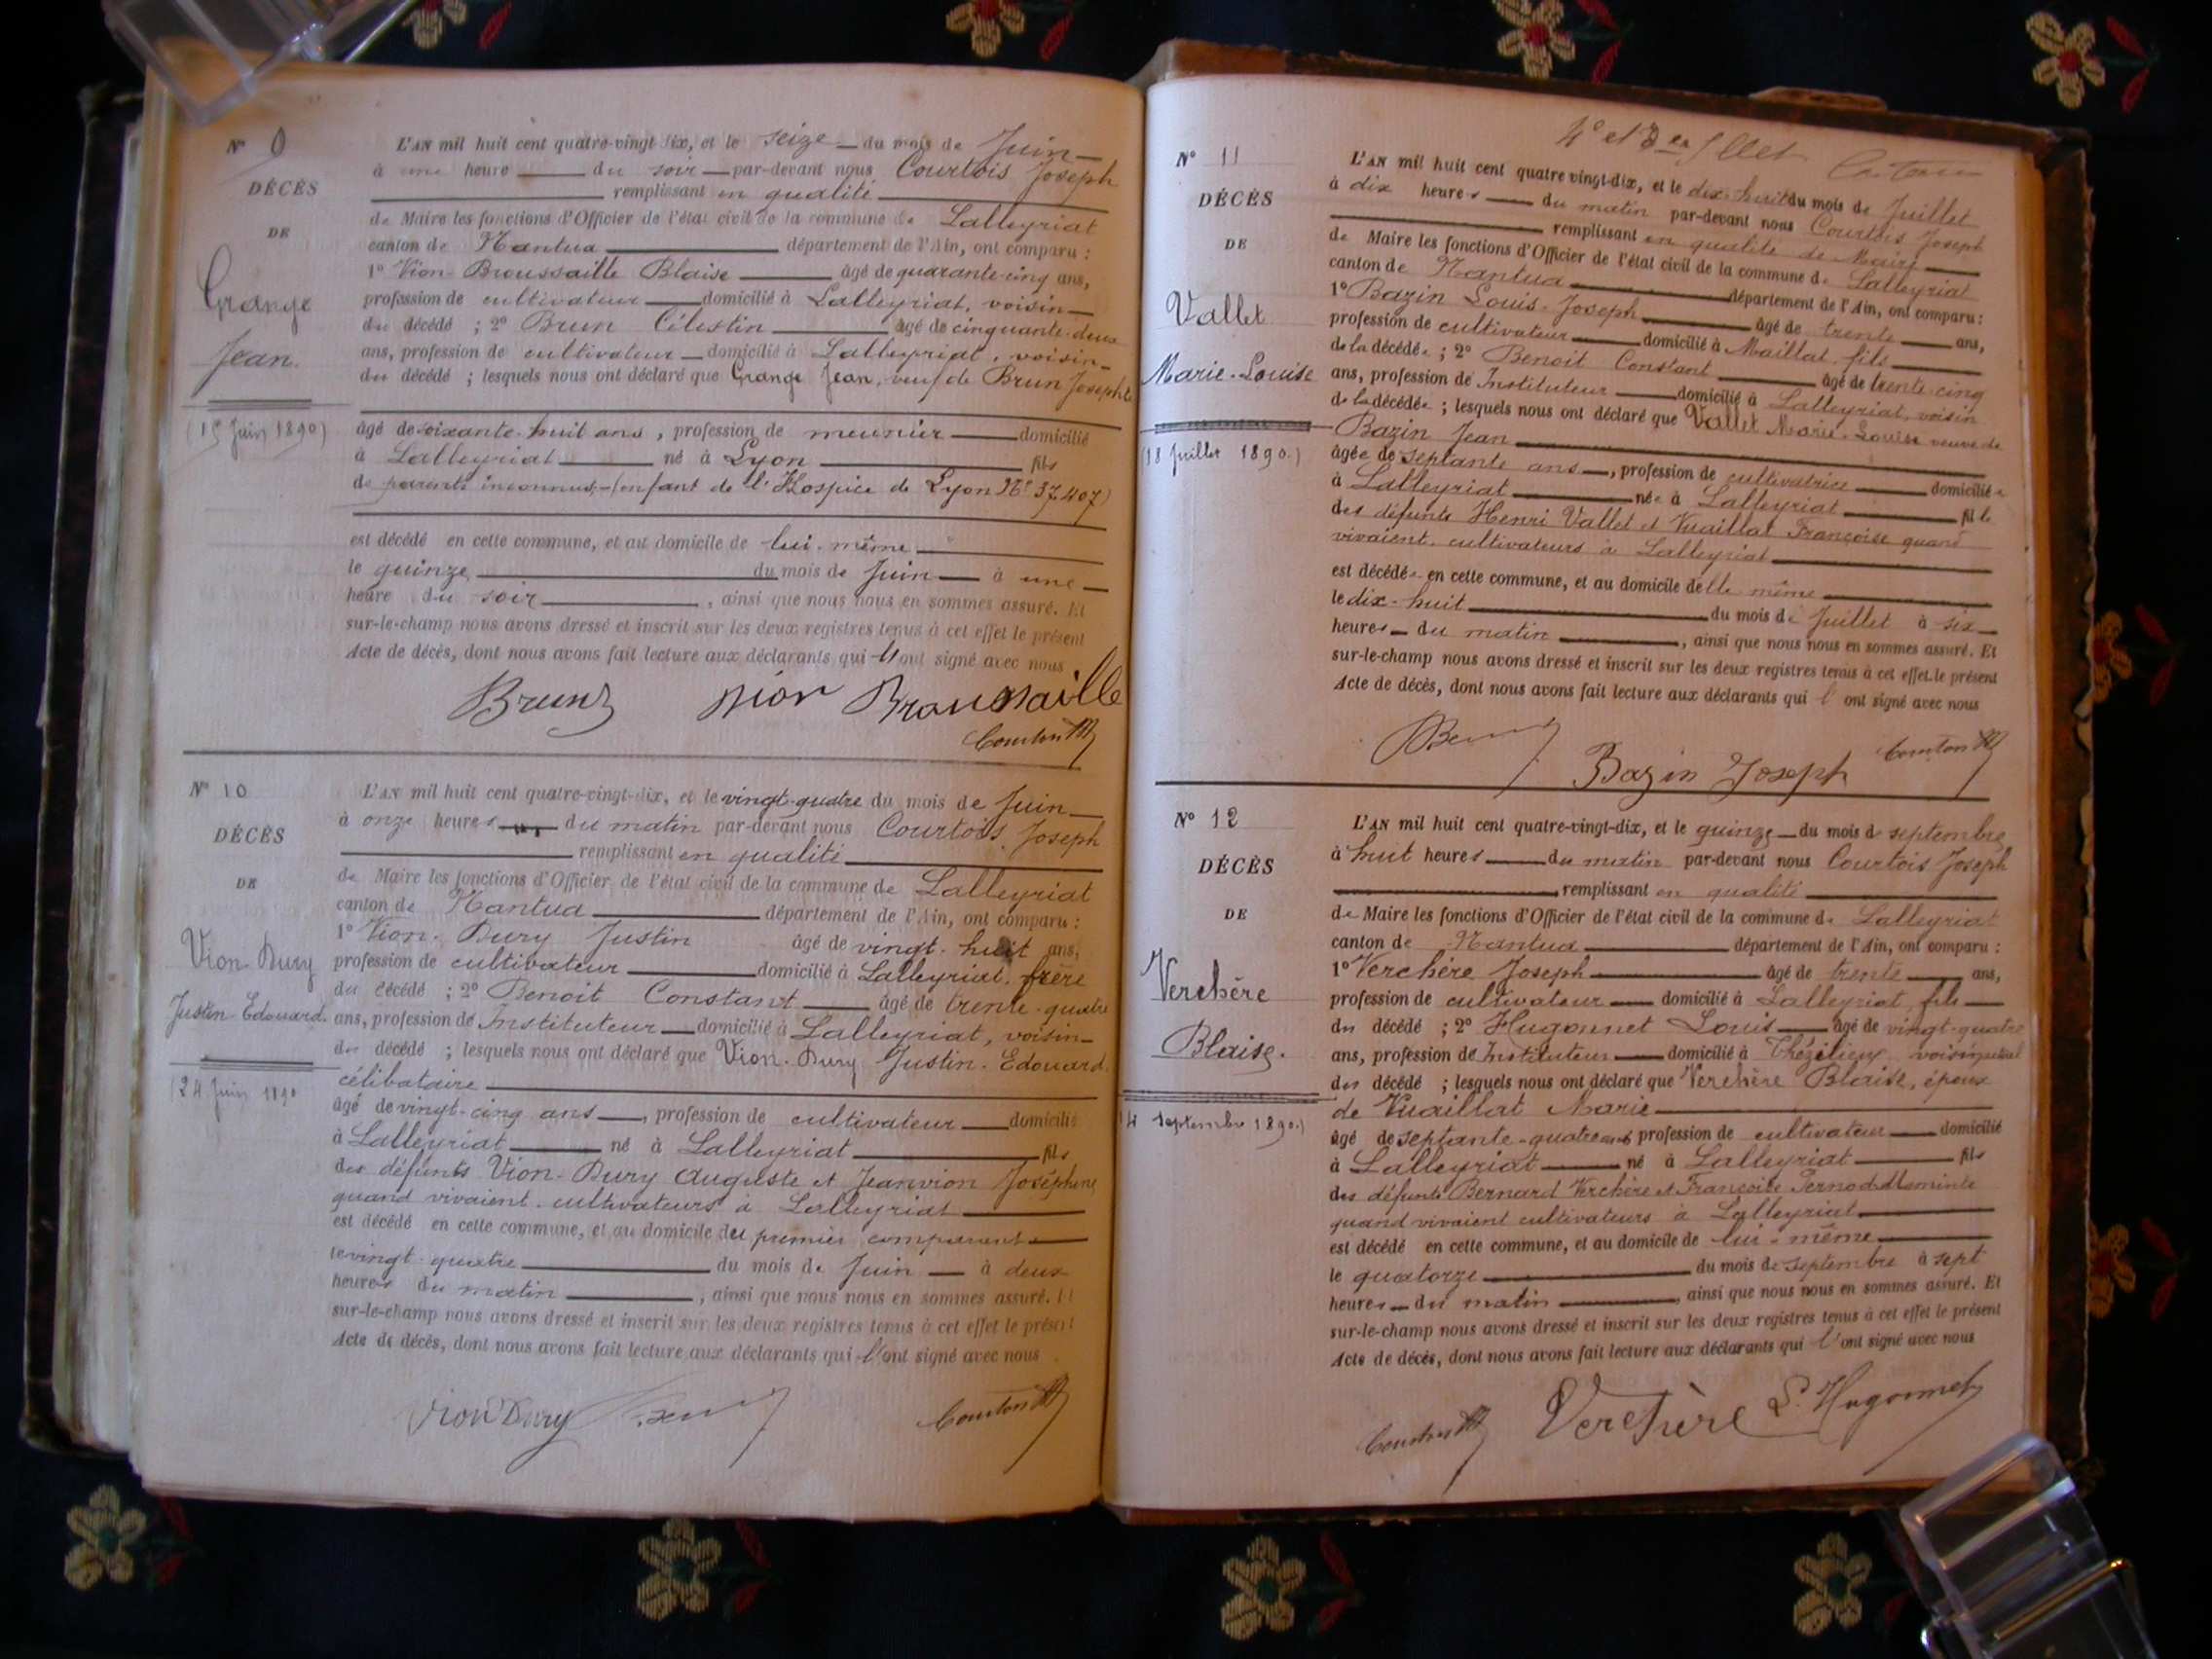 N° 9
DÉCÈS
DE
Grange
Jean.
(15 Juin 1890)
L'AN mil huit cent quatre-vingt-dix, et le seize du mois de Juin
à une heure du soir par-devant nous Courtois Joseph
remplissant en qualité
de Maire les fonctions d'Officier de l'état civil de la commune de Lalleyriat
canton de Nantua département de l'Ain, ont comparu :
1° Vion-Broussaille Blaise âgé de quarante-cinq ans,
profession de cultivateur domicilié à Lalleyriat, voisin
du décédé ; 2° Brun Célestin âgé de cinquante-deux
ans, profession de cultivateur domicilié à Lalleyriat, voisin
du décédé ; lesquels nous ont déclaré que Grange Jean, veuf de Brun Josephte
âgé de soixante-huit ans, profession de meunier domicilié
à Lalleyriat né à Lyon fils
de parents inconnus (enfant de l'Hospice de Lyon N° 37407)
est décédé en cette commune, et au domicile de lui-même
le quinze du mois de Juin à une
heure du soir, ainsi que nous nous en sommes assuré. Et
sur-le-champ nous avons dressé et inscrit sur les deux registres tenus à cet effet le présent
Acte de décès, dont nous avons fait lecture aux déclarants qui l'ont signé avec nous
Brun Vion Broussaille
Courtois
N° 10
DÉCÈS
DE
Vion-Dury
Justin-Edouard.
(24 Juin 1890
L'AN mil huit cent quatre-vingt-dix, et le vingt-quatre du mois de Juin
à onze heures du matin par-devant nous Courtois Joseph
remplissant en qualité
de Maire les fonctions d'Officier de l'état civil de la commune de Lalleyriat
canton de Nantua département de l'Ain, ont comparu :
1° Vion-Dury Justin âgé de vingt-huit ans,
profession de cultivateur domicilié à Lalleyriat, frère
du décédé ; 2° Benoit Constant âgé de trente-quatre
ans, profession de Instituteur domicilié à Lalleyriat, voisin
du décédé ; lesquels nous ont déclaré que Vion-Dury Justin-Edouard.
célibataire
âgé de vingt-cinq ans, profession de cultivateur domicilié
à Lalleyriat né à Lalleyriat fils
des défunts Vion-Dury Auguste et Jeanvion Joséphine
quand vivaient cultivateurs à Lalleyriat
est décédé en cette commune, et au domicile du premier comparant
le vingt-quatre du mois de Juin à deux
heures du matin, ainsi que nous nous en sommes assuré. Et
sur-le-champ nous avons dressé et inscrit sur les deux registres tenus à cet effet le présent
Acte de décès, dont nous avons fait lecture aux déclarants qui l'ont signé avec nous
Vion Dury Courtois
N° 11
DÉCÈS
DE
Vallet
Marie-Louise
(18 Juillet 1890.)
L'AN mil huit cent quatre vingt-dix, et le dix-huit du mois de Juillet
à dix heures du matin par-devant nous Courtois Joseph
remplissant en qualité de Maire
de Maire les fonctions d'Officier de l'état civil de la commune de Lalleyriat
canton de Nantua département de l'Ain, ont comparu :
1° Bazin Louis-Joseph âgé de trente ans,
profession de cultivateur domicilié à Maillat, fils
de la décédée ; 2° Benoit Constant âgé de trente-cinq
ans, profession de Instituteur domicilié à Lalleyriat, voisin
de la décédée ; lesquels nous ont déclaré que Vallet Marie-Louise veuve de
Bazin Jean
âgée de septante ans, profession de cultivatrice domiciliée
à Lalleyriat née à Lalleyriat fille
des défunts Henri Vallet et Vuaillat Françoise quand
vivaient cultivateurs à Lalleyriat
est décédée en cette commune, et au domicile delle même
le dix-huit du mois de Juillet à six
heures du matin, ainsi que nous nous en sommes assuré. Et
sur-le-champ nous avons dressé et inscrit sur les deux registres tenus à cet effet le présent
Acte de décès, dont nous avons fait lecture aux déclarants qui l'ont signé avec nous
Bazin Joseph Courtois
N° 12
DÉCÈS
DE
Verchère
Blaise.
14 septembre 1890.)
L'AN mil huit cent quatre-vingt-dix, et le quinze du mois de septembre
à huit heures du matin par-devant nous Courtois Joseph
remplissant en qualité
de Maire les fonctions d'Officier de l'état civil de la commune de Lalleyriat
canton de Nantua département de l'Ain, ont comparu :
1° Verchère Joseph âgé de trente ans,
profession de cultivateur domicilié à Lalleyriat, fils
du décédé ; 2° Hugonnet Louis âgé de vingt-quatre
ans, profession de Instituteur domicilié à Thézilieu voisin
du décédé ; lesquels nous ont déclaré que Verchère Blaise, époux
de Vuaillat Marie
âgé de septante-quatre ans profession de cultivateur domicilié
à Lalleyriat né à Lalleyriat fils
des défunts Bernard Verchère et Françoise Pernod
quand vivaient cultivateurs à Lalleyriat
est décédé en cette commune, et au domicile de lui-même
le quatorze du mois de septembre à sept
heures du matin, ainsi que nous nous en sommes assuré. Et
sur-le-champ nous avons dressé et inscrit sur les deux registres tenus à cet effet le présent
Acte de décès, dont nous avons fait lecture aux déclarants qui l'ont signé avec nous
Courtois Verchère L. Hugonnet